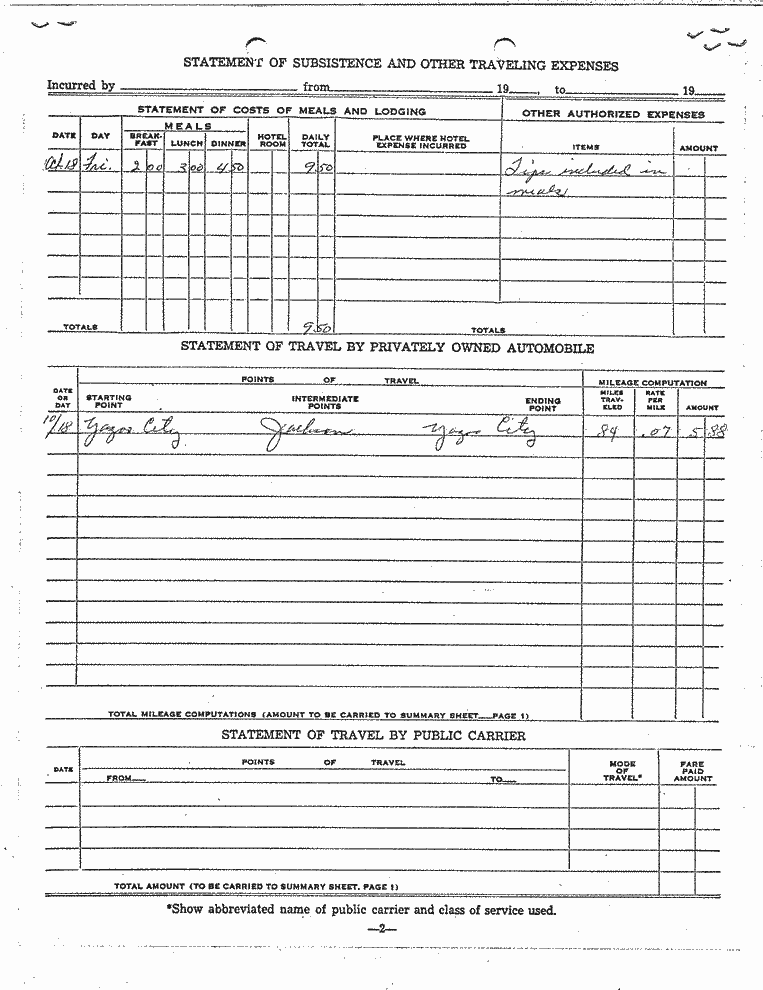 STATEMENT OF SUBSISTENCE AND OTHER TRAVELING EXPENSES
Incurred by from 19 , to 19
STATEMENT OF COSTS OF MEALS AND LODGING OTHER AUTHORIZED EXPENSES
DATE DAY MEALS BREAK-FAST LUNCH DINNER HOTEL ROOM DAILY TOTAL PLACE WHERE HOTEL EXPENSE INCURRED ITEMS AMOUNT
Oct. 18 Fri. 2 00 3 00 4 50 9 50 Tips included in
meals
TOTALS 9 50 TOTALS
STATEMENT OF TRAVEL BY PRIVATELY OWNED AUTOMOBILE
POINTS OF TRAVEL MILEAGE COMPUTATION
DATE OR DAY STARTING POINT INTERMEDIATE POINTS ENDING POINT MILES TRAV-ELED RATE PER MILE AMOUNT
10/18 Yazoo City Jackson Yazoo City 84 .07 5 88
TOTAL MILEAGE COMPUTATIONS (AMOUNT TO BE CARRIED TO SUMMARY SHEET PAGE 1)
STATEMENT OF TRAVEL BY PUBLIC CARRIER
DATE POINTS OF TRAVEL MODE OF TRAVEL* FARE PAID AMOUNT
FROM TO
TOTAL AMOUNT (TO BE CARRIED TO SUMMARY SHEET. PAGE 1)
*Show abbreviated name of public carrier and class of service used.
—2—